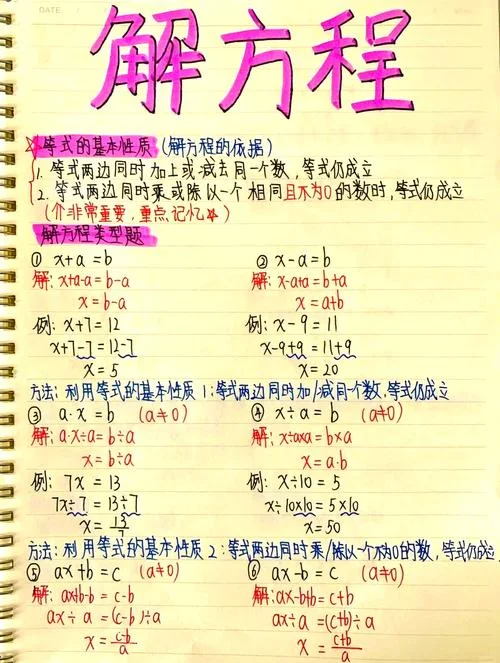 DATE
解方程
☆等式的基本性质 (解方程的依据)
1. 等式两边同时加上或减去同一个数, 等式仍成立
2. 等式两边同时乘或除以一个相同且不为0的数时, 等式仍成立
(个非常重要, 重点记忆☆)
解方程类型题
① x+a=b
解: x+a-a=b-a
x=b-a
例: x+7=12
x+7-7=12-7
x=5
② x-a=b
解: x-a+a=b+a
x=a+b
例: x-9=11
x-9+9=11+9
x=20
方法: 利用等式的基本性质1:等式两边同时加/减同一个数, 等式仍成立
③ a·x=b (a≠0)
解: a·x÷a=b÷a
x=b÷a
例: 7x=13
7x÷7=13÷7
x=13/7
④ x÷a=b (a≠0)
解: x÷a×a=b×a
x=a·b
例: x÷10=5
x÷10×10=5×10
x=50
方法: 利用等式的基本性质2:等式两边同时乘/除以一个不为0的数, 等式仍成立
⑤ ax+b=c (a≠0)
解: ax+b-b=c-b
ax÷a=(c-b)÷a
x=c-b/a
⑥ ax-b=c (a≠0)
解: ax-b+b=c+b
ax÷a=(c+b)÷a
x=c+b/a